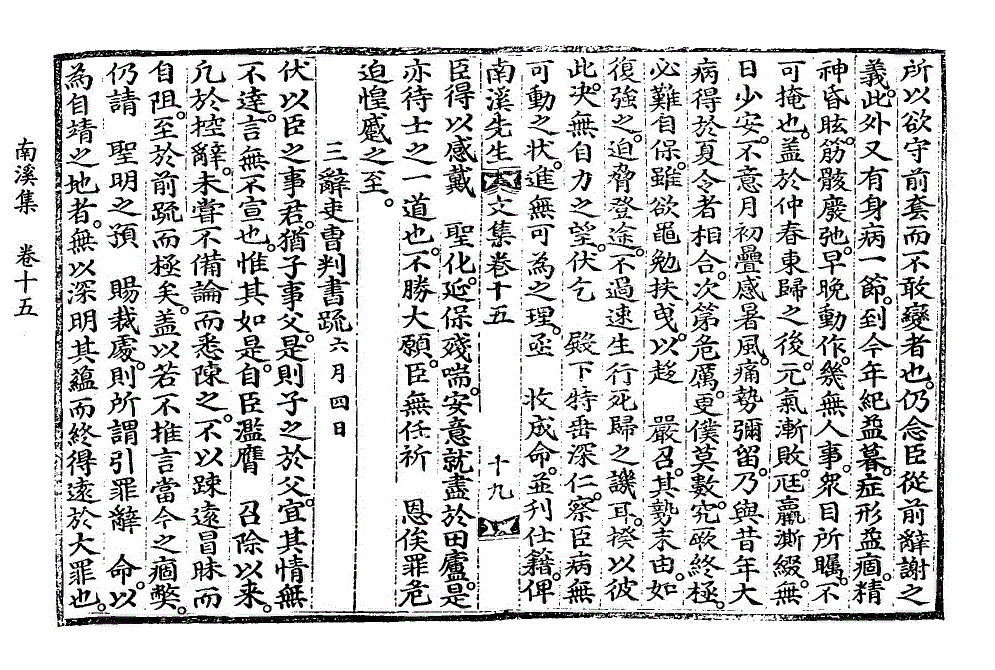 所以欲守前套而不敢變者也。仍念臣從前辭謝之
義。此外又有身病一節。到今年紀益暮。症形益痼。精
神昏眩。筋骸廢弛。早晩動作。幾無人事。衆目所矚。不
可掩也。盖於仲春東歸之後。元氣漸敗。尫羸澌綴。無
日少安。不意月初疊感暑風。痛勢彌留。乃與昔年大
病得於夏令者相合。次第危厲。更僕莫數。究厥終極。
必難自保。雖欲黽勉扶曳。以趍　嚴召。其勢末由。如
復強之。迫脅登途。不過速生行死歸之譏耳。揆以彼
此。决無自力之望。伏乞　殿下特垂深仁。察臣病無
可動之状。進無可為之理。亟　收成命。並刋仕籍。俾
南溪先生文集卷十五　十九
臣得以感戴　聖化。延保殘喘。安意就盡於田廬。是
亦待士之一道也。不勝大願。臣無任祈　恩俟罪危
迫惶蹙之至。
三辭吏曹判書疏六月四日
伏以臣之事君。猶子事父。是則子之於父。宜其情無
不達。言無不宣也。惟其如是。自臣濫膺　召除以来。
凡於控辭。未嘗不備論而悉陳之。不以踈遠冒昧而
自阻。至於前疏而極矣。盖以若不推言當今之痼弊。
仍請　聖明之預　賜裁處。則所謂引罪辭　命。以
為自靖之地者。無以深明其蘊而終得遠於大罪也。
南溪集　卷十五